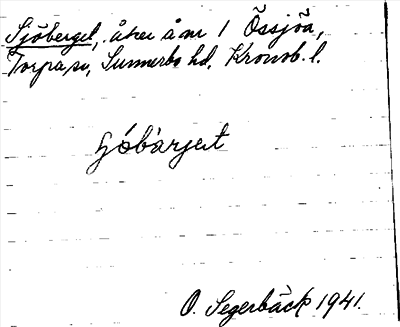 Sjöberget, åker å nr 1 Össjöa,
Torpa sn, Sunnerbo hd, Kronob. l.
O. Segerbäck 1941.